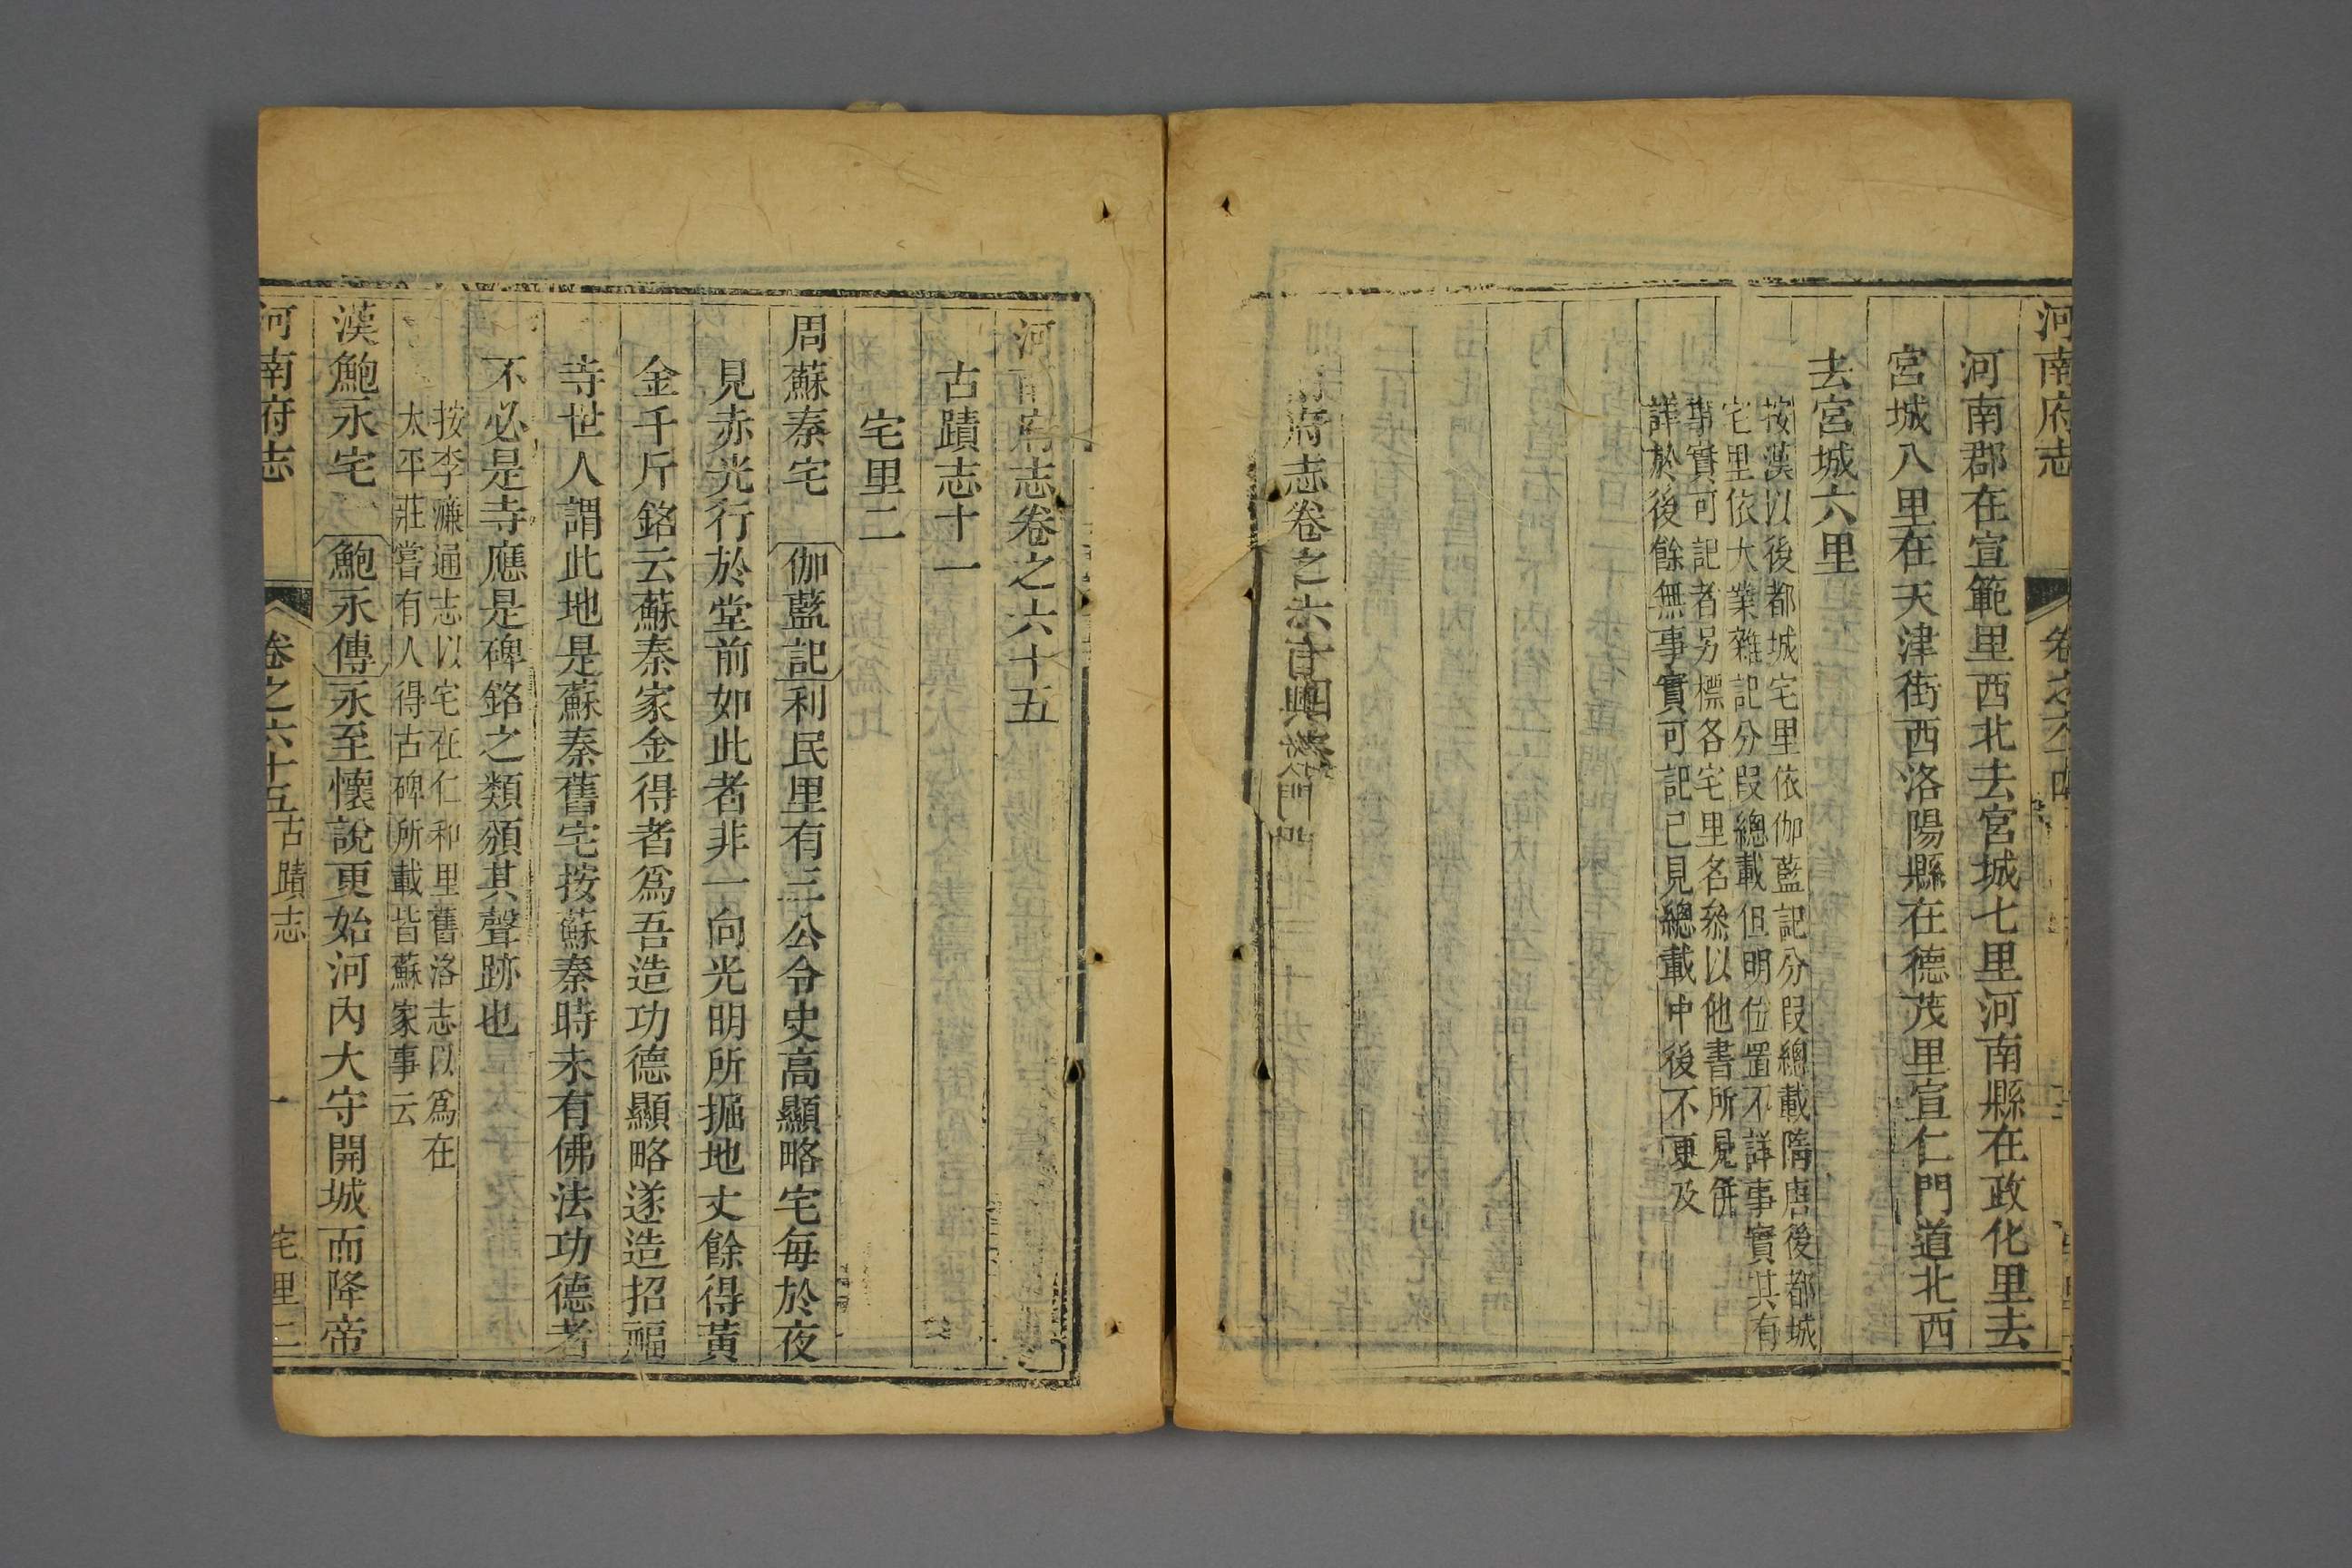 河南府志
卷之六十四
河南郡在宣範里西北去宮城七里河南縣在政化里去
宮城八里在天津街西洛陽縣在德茂里宣仁門道北西
去宮城六里
按漢以後都城宅里依伽藍記分叚總載隋唐後都城
宅里依大業雜記分叚總載但明位置不詳事實其有
事實可記者另標各宅里名叅以他書所見併
詳於後餘無事實可記已見總載中後不更及
府志卷之六
河南府志卷之六十五
古蹟志十一
宅里二
周蘇秦宅 伽藍記利民里有三公令史高顯略宅每於夜
見赤光行於堂前如此者非一向光明所掘地丈餘得黃
金千斤銘云蘇秦家金得者爲吾造功德顯略遂造招福
寺世人謂此地是蘇秦舊宅按蘇秦時未有佛法功德者
不必是寺應是碑銘之類頌其聲跡也
按李濂通志以宅在仁和里舊洛志以爲在
太平莊嘗有人得古碑所載皆蘇家事云
漢鮑永宅 鮑永傳永至懷說更始河內大守開城而降帝
河南府志
卷之六十五
古蹟志
宅里二
一